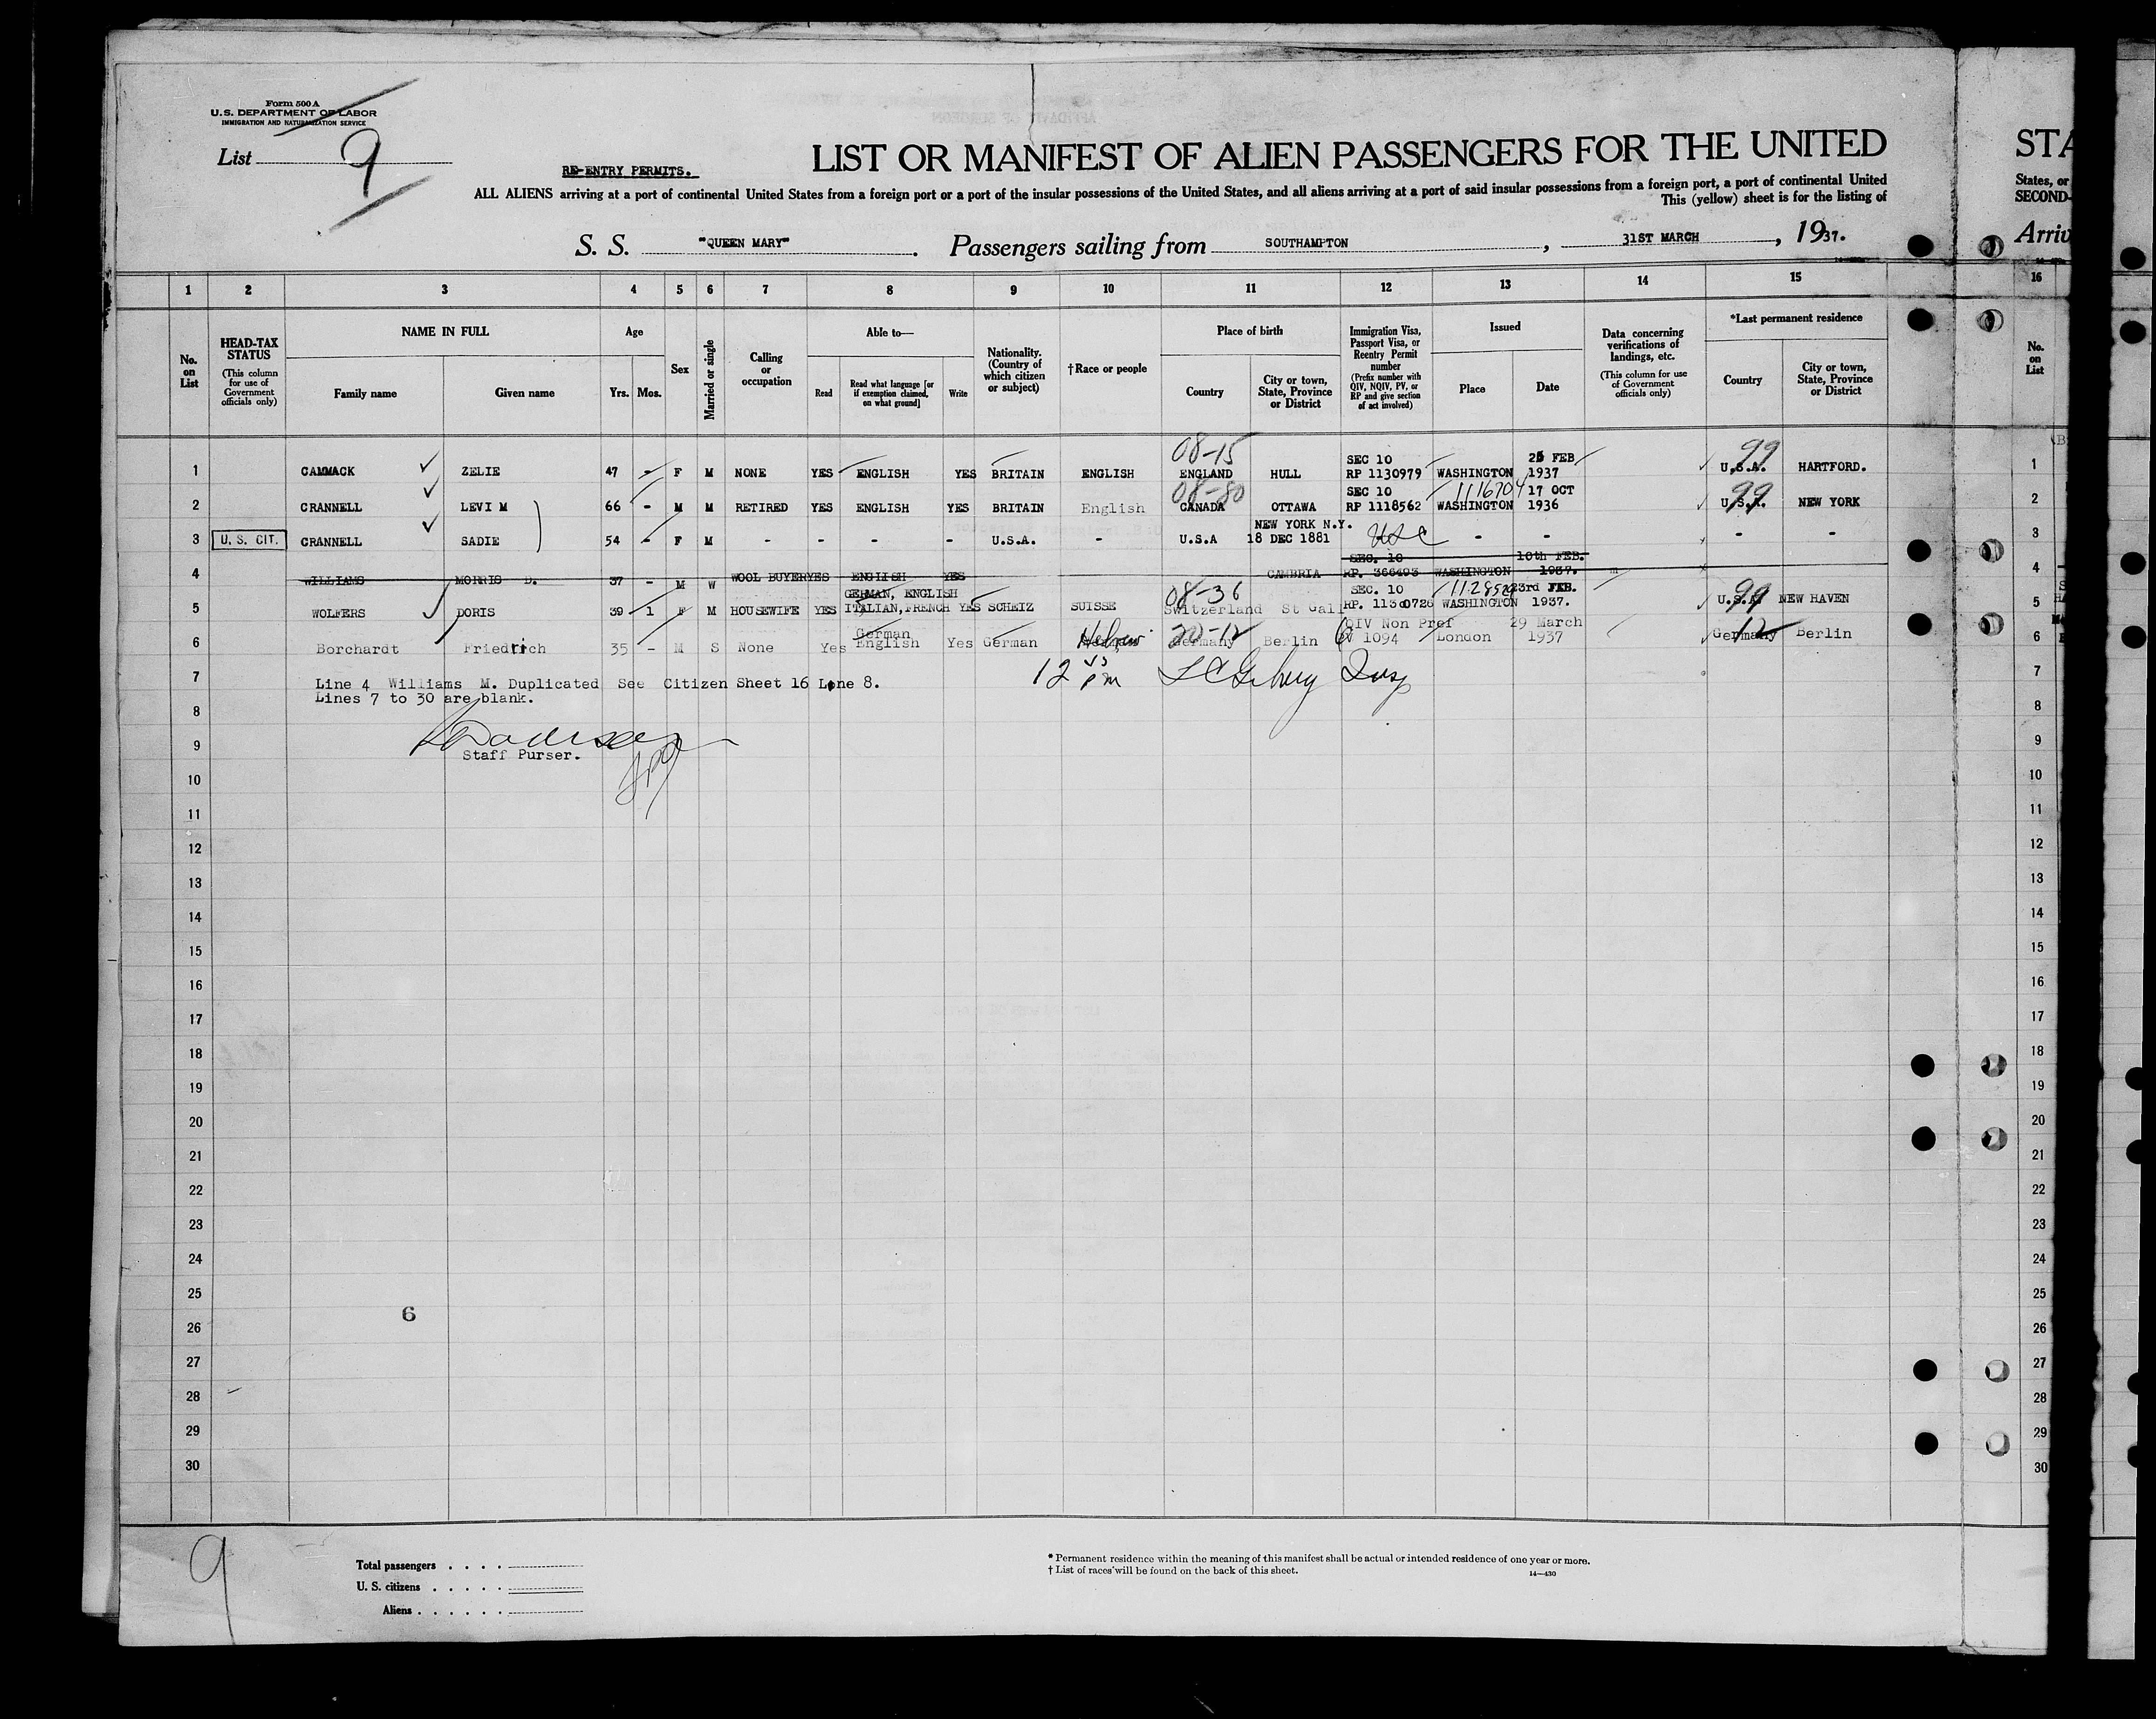 Form 500 A
U.S. DEPARTMENT OF LABOR
IMMIGRATION AND NATURALIZATION SERVICE
List 9
RE-ENTRY PERMITS.
LIST OR MANIFEST OF ALIEN PASSENGERS FOR THE UNITED
STA
ALL ALIENS arriving at a port of continental United States from a foreign port or a port of the insular possessions of the United States, and all aliens arriving at a port of said insular possessions from a foreign port, a port of continental United
States, or
This (yellow) sheet is for the listing of
SECOND-
S. S. "QUEEN MARY". Passengers sailing from SOUTHAMPTON, 31ST MARCH, 1937.
Arriv
1 2 3 4 5 6 7 8 9 10 11 12 13 14 15 16
No. on List
HEAD-TAX STATUS
(This column for use of Government officials only)
NAME IN FULL
Family name
Given name
Age
Yrs. Mos.
Sex
Married or single
Calling or occupation
Able to—
Read
Read what language [or if exemption claimed, on what ground]
Write
Nationality. (Country of which citizen or subject)
†Race or people
Place of birth
Country
City or town, State, Province or District
Immigration Visa, Passport Visa, or Reentry Permit number
(Prefix number with QIV, NQIV, PV, or RP and give section of act involved)
Issued
Place
Date
Data concerning verifications of landings, etc.
(This column for use of Government officials only)
*Last permanent residence
Country
City or town, State, Province or District
No. on List
08-15 SEC 10 FEB 99
1 CAMMACK ZELIE 47 - F M NONE YES ENGLISH YES BRITAIN ENGLISH ENGLAND HULL RP 1130979 WASHINGTON 1937 U.S.A. HARTFORD. 1
08-80 SEC 10 1116704 17 OCT 99
2 CRANNELL LEVI M 66 - M M RETIRED YES ENGLISH YES BRITAIN English CANADA OTTAWA RP 1118562 WASHINGTON 1936 U.S.A. NEW YORK 2
NEW YORK N.Y.
3 U. S. CIT. CRANNELL SADIE 54 - F M - - - - U.S.A. - U.S.A 18 DEC 1881 USC - - - - 3
SEC. 10 10th FEB.
4 WILLIAMS MORRIS D. 37 - M W WOOL BUYER YES ENGLISH YES CAMBRIA RP. 366493 WASHINGTON 1937. 4
GERMAN, ENGLISH 08-36 SEC. 10 23rd FEB. 99
5 WOLFERS DORIS 39 1 F M HOUSEWIFE YES ITALIAN, FRENCH YES SCHEIZ SUISSE Switzerland St Gall RP. 1130726 WASHINGTON 1937. U.S.A. NEW HAVEN 5
German Hebrew 20-12 QIV Non Pref 29 March 12
6 Borchardt Friedrich 35 - M S None Yes English Yes German Germany Berlin 1094 London 1937 Germany Berlin 6
7 Line 4 Williams M. Duplicated See Citizen Sheet 16 Line 8. 7
Lines 7 to 30 are blank.
12 pm
8 8
9 9
Staff Purser.
10 10
11 11
12 12
13 13
14 14
15 15
16 16
17 17
18 18
19 19
20 20
21 21
22 22
23 23
24 24
25 25
6
26 26
27 27
28 28
29 29
30 30
9
Total passengers . . . .
U. S. citizens . . . . .
Aliens . . . . . .
* Permanent residence within the meaning of this manifest shall be actual or intended residence of one year or more.
† List of races will be found on the back of this sheet.
14—430